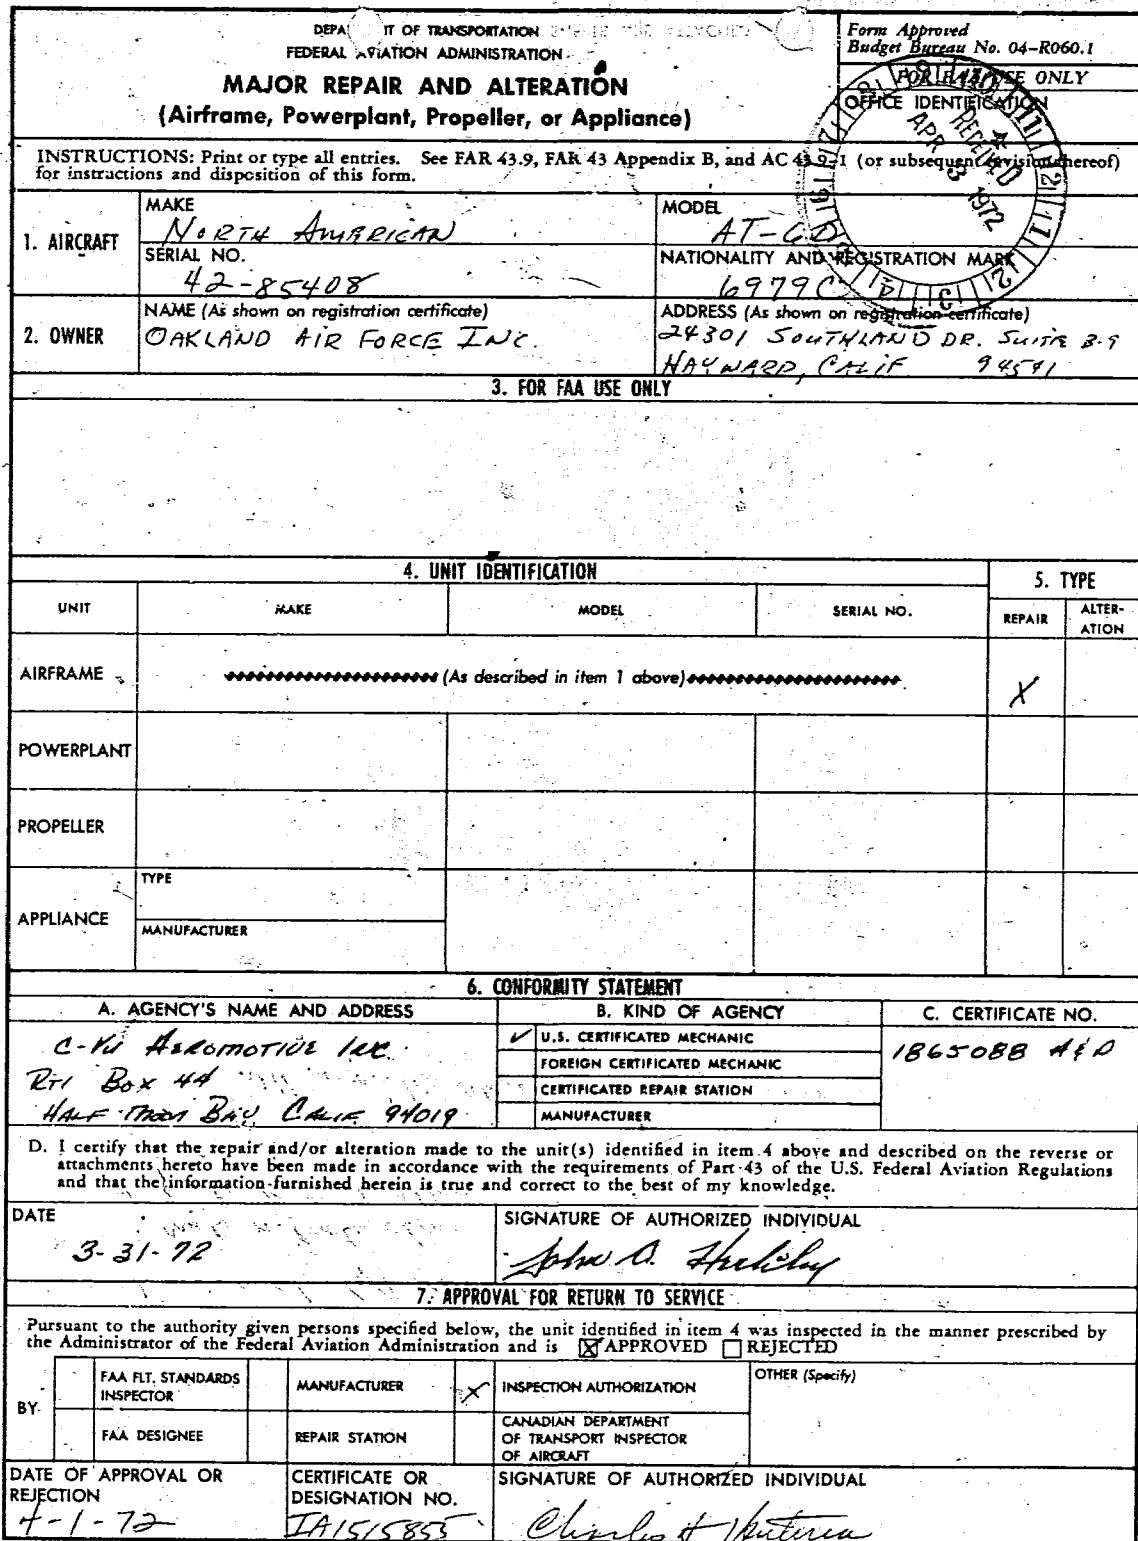 DEPA IT OF TRANSPORTATION
FEDERAL AVIATION ADMINISTRATION
MAJOR REPAIR AND ALTERATION
(Airframe, Powerplant, Propeller, or Appliance)
Form Approved
Budget Bureau No. 04-R060.1
FOR FAA USE ONLY
OFFICE IDENTIFICATION
RECEIVED
APR 3 1972
INSTRUCTIONS: Print or type all entries. See FAR 43.9, FAR 43 Appendix B, and AC 43.9-1 (or subsequent revision thereof)
for instructions and disposition of this form.
1. AIRCRAFT
MAKE
NORTH AMERICAN
MODEL
AT-6D
SERIAL NO.
42-85408
NATIONALITY AND REGISTRATION MARK
6979C
2. OWNER
NAME (As shown on registration certificate)
OAKLAND AIR FORCE INC.
ADDRESS (As shown on registration certificate)
24301 SOUTHLAND DR. SUITE B-9
HAYWARD, CALIF 94541
3. FOR FAA USE ONLY
4. UNIT IDENTIFICATION
5. TYPE
UNIT MAKE MODEL SERIAL NO. REPAIR ALTER-
ATION
AIRFRAME (As described in item 1 above) X
POWERPLANT
PROPELLER
APPLIANCE
TYPE
MANUFACTURER
6. CONFORMITY STATEMENT
A. AGENCY'S NAME AND ADDRESS
B. KIND OF AGENCY
C. CERTIFICATE NO.
C-Vu AEROMOTIVE INC.
RT1 BOX 44
HALF MOON BAY, CALIF. 94019
✓ U.S. CERTIFICATED MECHANIC
FOREIGN CERTIFICATED MECHANIC
CERTIFICATED REPAIR STATION
MANUFACTURER
1865088 A&P
D. I certify that the repair and/or alteration made to the unit(s) identified in item 4 above and described on the reverse or
attachments hereto have been made in accordance with the requirements of Part 43 of the U.S. Federal Aviation Regulations
and that the information furnished herein is true and correct to the best of my knowledge.
DATE
3-31-72
SIGNATURE OF AUTHORIZED INDIVIDUAL
John A.
7. APPROVAL FOR RETURN TO SERVICE
Pursuant to the authority given persons specified below, the unit identified in item 4 was inspected in the manner prescribed by
the Administrator of the Federal Aviation Administration and is X APPROVED REJECTED
BY
FAA FLT. STANDARDS
INSPECTOR
MANUFACTURER
X INSPECTION AUTHORIZATION
OTHER (Specify)
FAA DESIGNEE
REPAIR STATION
CANADIAN DEPARTMENT
OF TRANSPORT INSPECTOR
OF AIRCRAFT
DATE OF APPROVAL OR
REJECTION
4-1-72
CERTIFICATE OR
DESIGNATION NO.
IA1515855
SIGNATURE OF AUTHORIZED INDIVIDUAL
Charles H